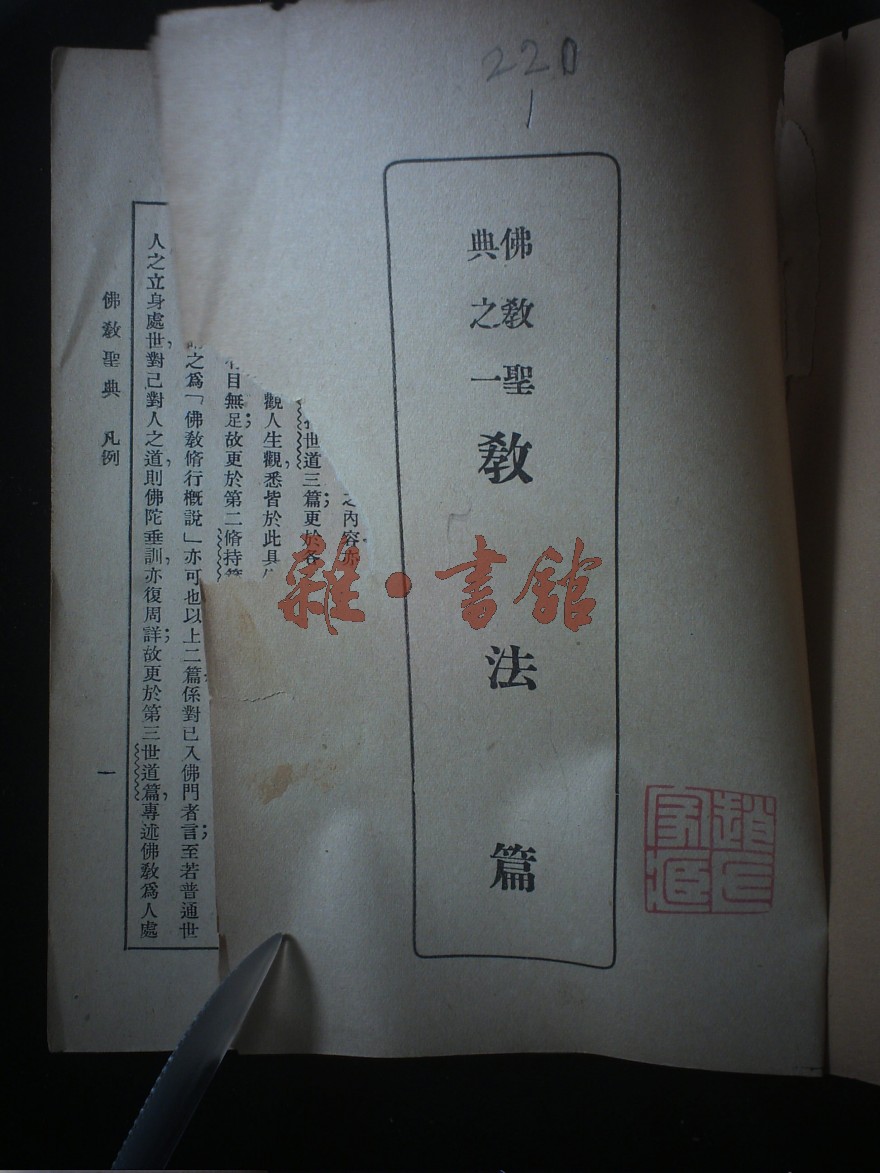 220
1
佛教聖
典之一
教法篇
雜·書館
之內容亦
世道三篇；更於各
觀人生觀，悉皆於此具
有目無足；故更於第二脩持篇
之爲「佛教脩行概說」亦可也以上二篇係對已入佛門者言；至若普通世
人之立身處世，對己對人之道，則佛陀垂訓，亦復周詳；故更於第三世道篇，專述佛教爲人處
佛教聖典 凡例
一